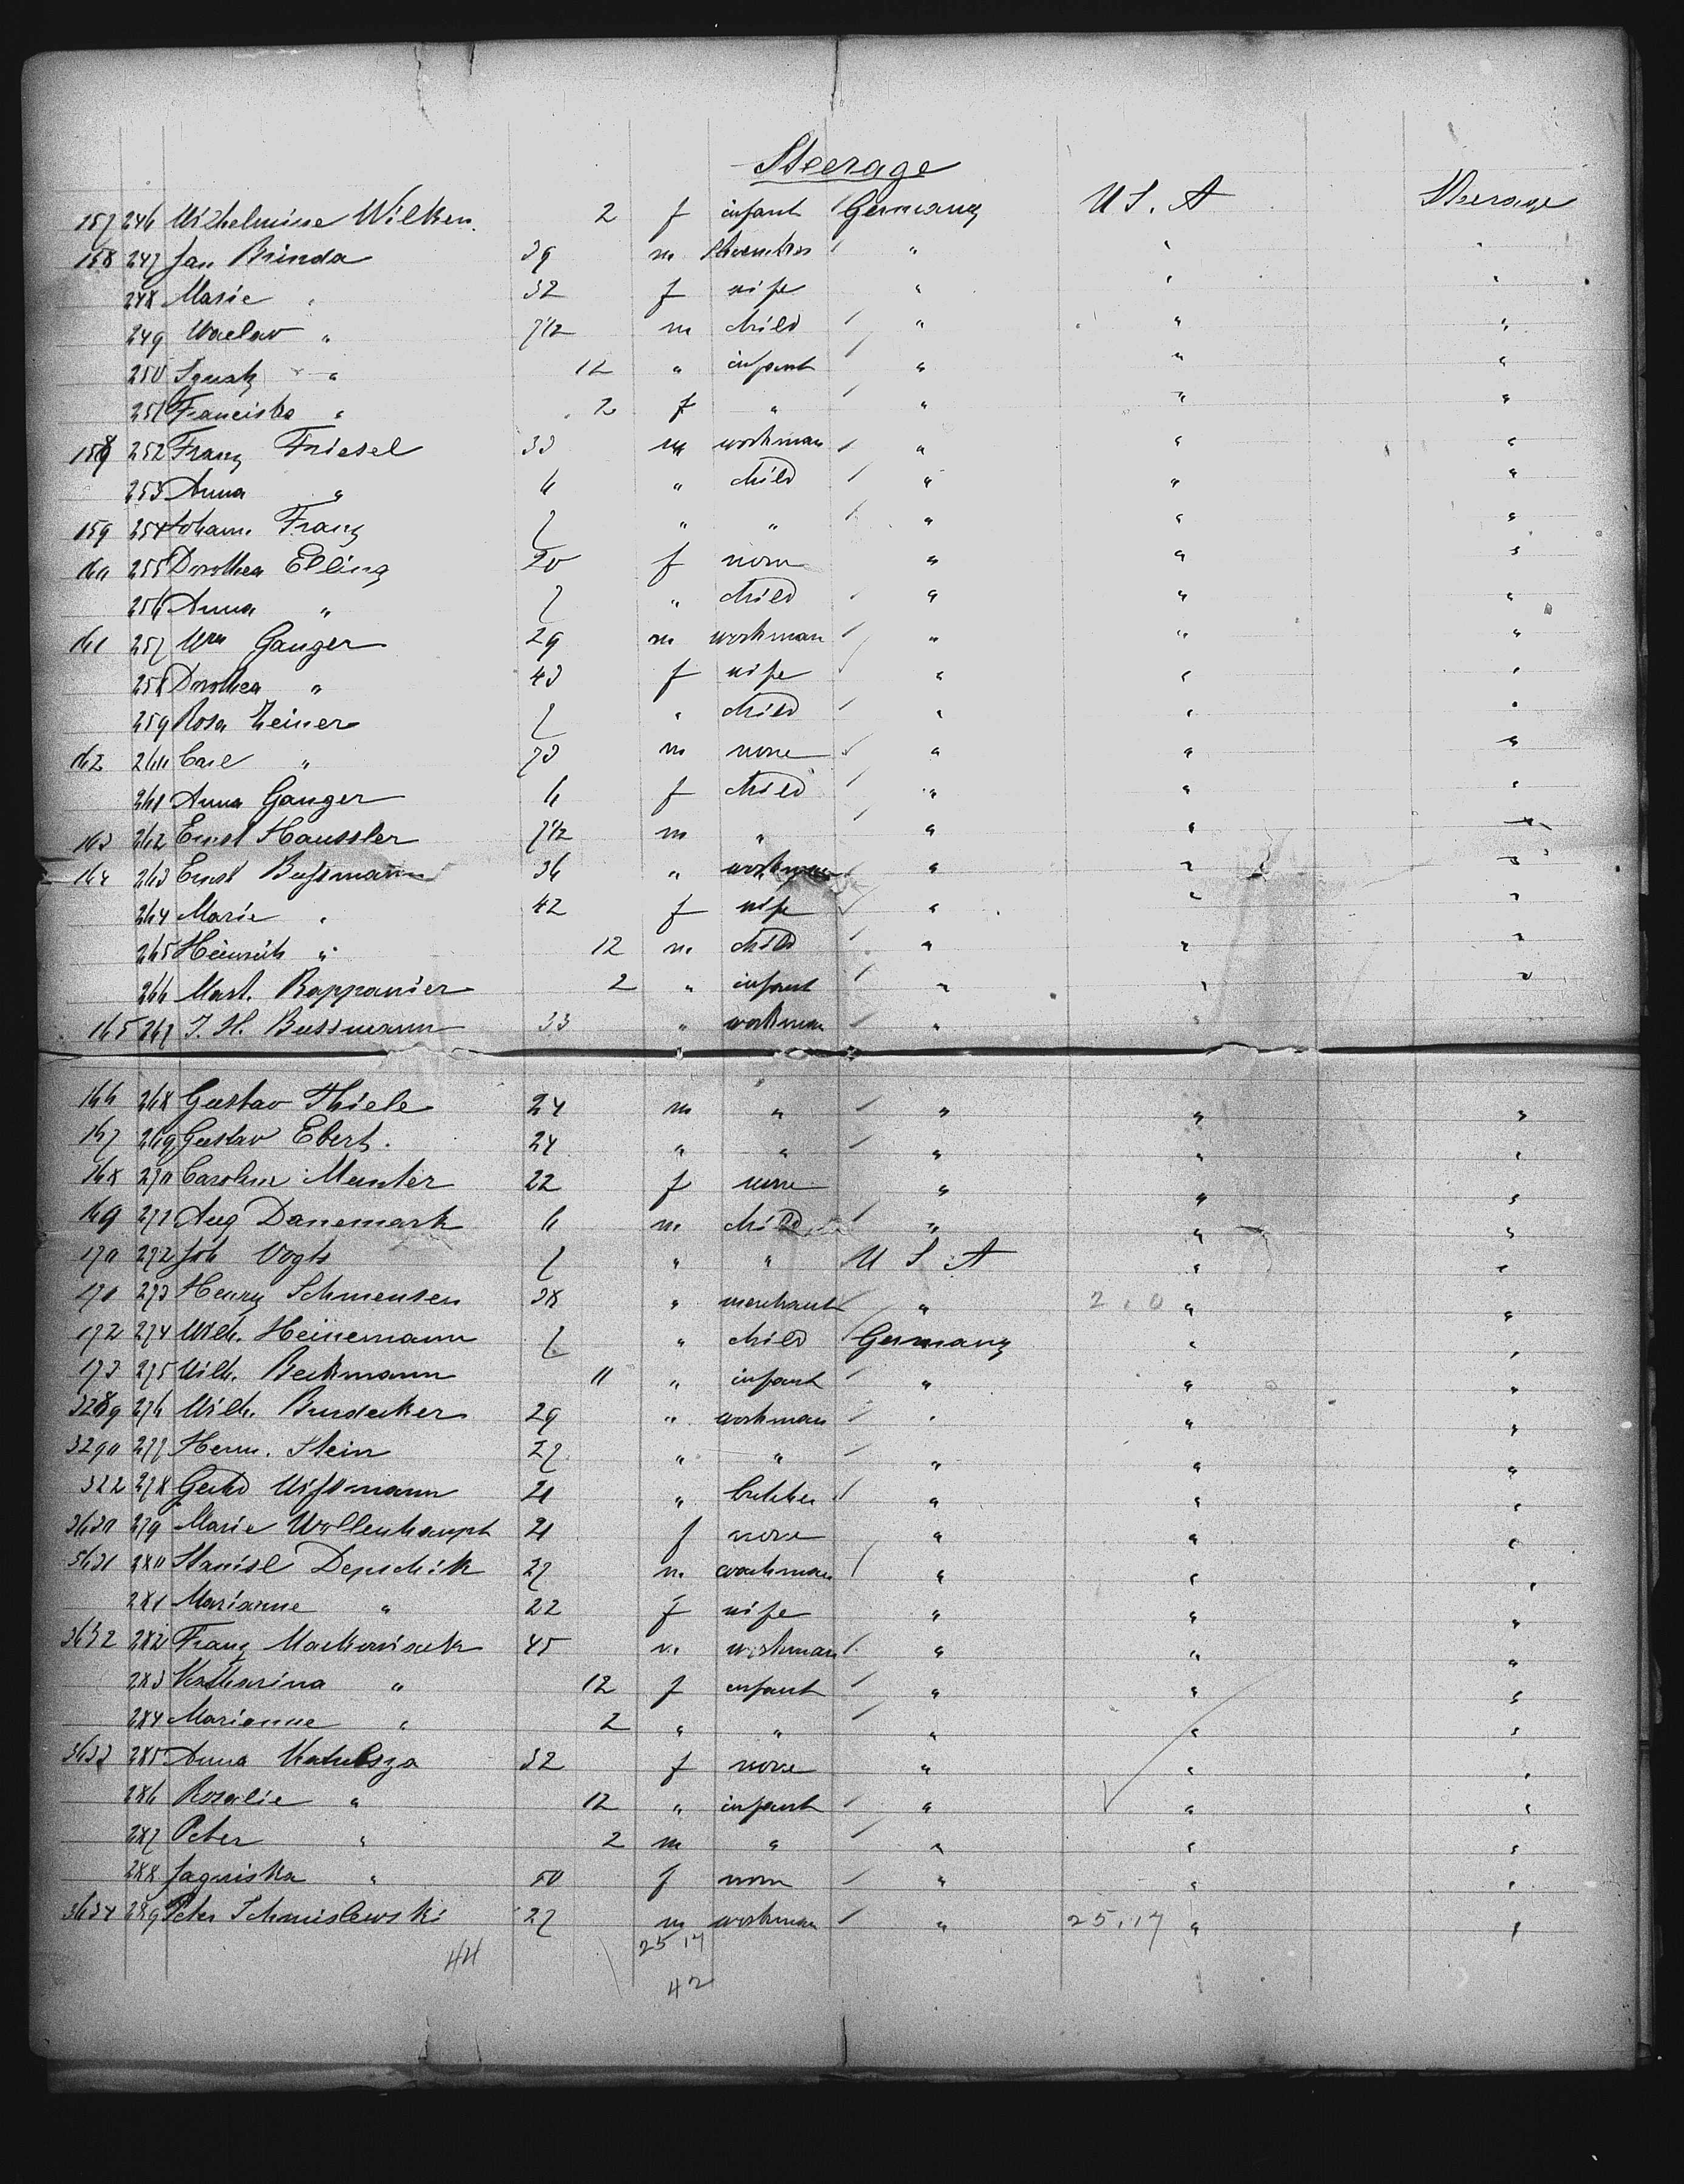 Steerage
157 246 Wilhelmine Wilken. 2 f infant Germany U S. A Steerage
158 247 Jan Brinda 39 m " " "
248 Marie " 32 f wife " " "
249 Waclav " 7 1/2 m child " " "
250 " 12 " infant " " "
251 Franciska " 2 f " " " "
159 252 Franz Friesel 33 m workman " " "
253 Anna " 6 " child " " "
159 254 Johann Franz 7 " " " " "
160 255 Dorothea Elling 20 f none " " "
256 Anna " 7 " child " " "
161 257 Wm Ganger 29 m workman " " "
258 Dorothea " 43 f wife " " "
259 Rosa Zeiner 7 " child " " "
162 260 Carl " 73 m none " " "
261 Anna Ganger 6 f child " " "
163 262 Ernst Haussler 7 1/2 m " " " "
164 263 Ernst Bussmann 36 " workman " " "
264 Marie " 42 f wife " " "
265 Heinrich " 12 m child " " "
266 Mart. Rappanier 2 " infant " " "
165 267 J. H. Bussmann 33 " workman " " "
166 268 Gustav Thiele 24 m " " " "
167 269 Gustav Ebert. 24 " " " " "
168 270 Caroline Munter 22 f none " " "
169 271 Aug Danemark 6 m child " " "
170 272 Joh Vogts 7 " " U S. A " "
171 273 Henry Schmensen 38 " merchant " 2.0 " "
172 274 Wilh. Heinemann 7 " child Germany " "
173 275 Wilh. Beckmann 11 " infant " " "
3289 276 Wilh. 29 " workman " " "
3290 277 Herm. Stein 27 " " " " "
322 278 Gerhd Wissmann 21 " butcher " " "
3630 279 Marie Wollenhaupt 21 f none " " "
3631 280 Stanisl Depschik 27 m workman " " "
281 Marianne " 22 f wife " " "
3632 282 Franz 45 m workman " " "
283 Katharina " 12 f infant " " "
284 Marianne " 2 " " " " "
3633 285 Anna 32 f none " " "
286 Rosalie " 12 " infant " " "
287 Peter " 2 m " " " "
288 Jagniska " 50 f none " " "
3634 289 Peter Schmislewski 27 m workman " 25,17 " "
44 25 17
42